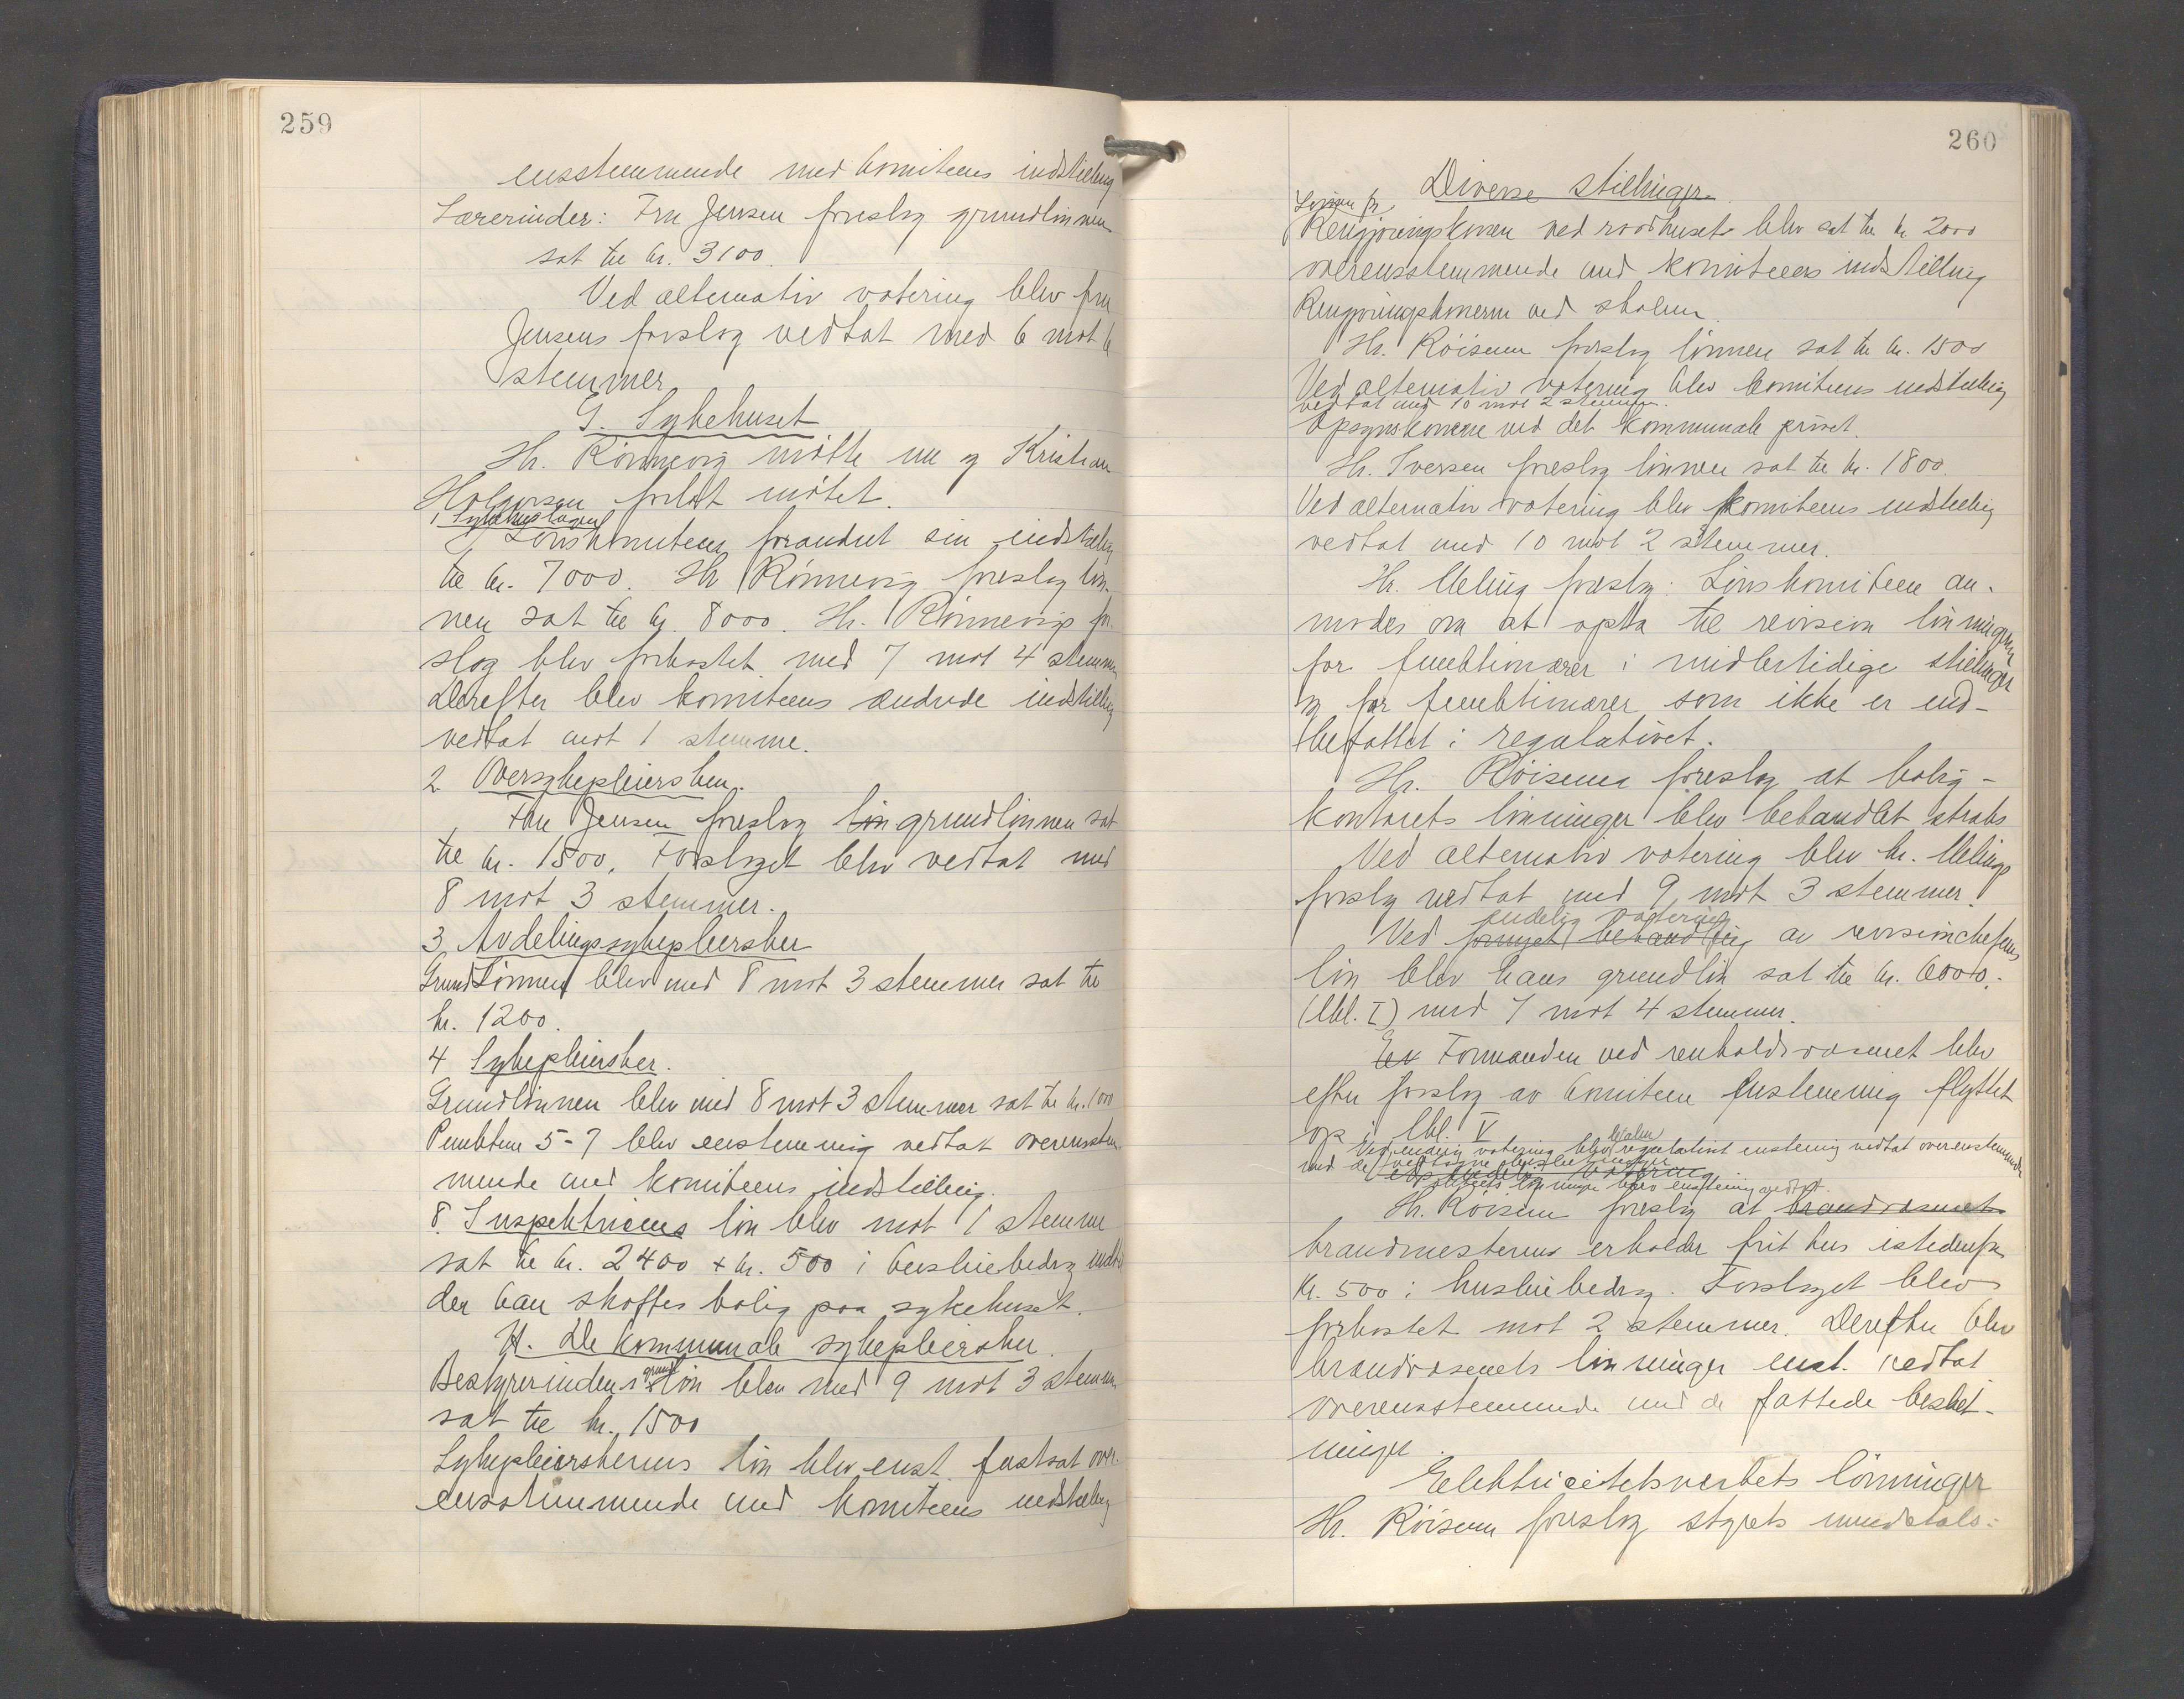 259
ensstemmende med komiteens indstilling
Lærerinder: Fru Jensen foreslog grundlønnen
sat til kr. 3100.
Ved alternativ votering blev fru
Jensens forslag vedtat med 6 mot 6
stemmer
G. Sykehuset
Hr. Rönnevig mötte nu og Kristian
Holgersen forlot mötet.
1 Sykehuslægen
Lönskomiteen forandret sin indstilling
til kr. 7000. Hr. Rönnevig foreslog løn-
nen sat til kr. 8000. Hr. Rönnevigs for-
slag blev forkastet med 7 mot 4 stemmer
Derefter blev komiteens ændrede indstilling
vedtat mot 1 stemme.
2 Oversykepleiersken.
Fru Jensen foreslog løn grundlønnen sat
til kr. 1500. Forslaget blev vedtat med
8 mot 3 stemmer.
3. Avdelingssykepleiersker
Grundlønnen blev med 8 mot 3 stemmer sat til
kr. 1200.
4 Sykepleiersker.
Grundlønnen blev med 8 mot 3 stemmer sat til kr. 1000
Punktene 5-7 blev enstemmig vedtat overensstem-
mende med komiteens indstilling.
8. Inspektricens løn blev mot 1 stemme
sat til kr. 2400 + kr. 500 i husleiebidrag indtil
der kan skaffes bolig paa sykehuset.
H. De kommunale sykepleiersker.
Bestyrerindens grundløn blev med 9 mot 3 stemmer
sat til kr. 1500
Sykepleierskernes løn blev enst. fastsat over-
ensstemmende med komiteens indstilling
260
Diverse stillinger
Lønnen for
Rengjøringskonen ved raadhuset blev sat til kr. 2000
overensstemmende med komiteens indstilling
Rengjøringskonerne ved skolen.
Hr. Röisum foreslog lønnen sat til kr. 1500
Ved alternativ votering blev komiteens indstilling
vedtat med 10 mot 2 stemmer.
Opsynskonene ved det kommunale privet.
Hr. Iversen foreslog lønnen sat til kr. 1800.
Ved alternativ votering blev komiteens indstilling
vedtat med 10 mot 2 stemmer.
Hr. Meling foreslog: Lønskomiteen an-
modes om at opta til revision lønningene
for funktionærer i midlertidige stillinger
og for funktionærer som ikke er ind-
befattet i regulativet.
Hr. Röisum foreslog at bolig-
kontorets lønninger blev behandlet straks
Ved alternativ votering blev hr. Melings
forslag vedtat med 9 mot 3 stemmer.
endelig votering
Ved fornyet behandling av revisionchefens
løn blev hans grundløn sat til kr. 6000.-
(lkl. I) med 7 mot 4 stemmer.
Formanden ved renholdsvæsenet blev
efter forslag av komiteen enstemmig flyttet
op i lkl. V
Ved endelig votering blev lokalregulativet enstemmig vedtat overensstemmende
med de vedtagne beslutninger
lønninger blev enstemmig vedtat.
Hr. Röisum foreslog at brandvæsenet
brandmesterens erholder frit hus istedenfor
kr. 500 i husleiebidrag. Forslaget blev
forkastet mot 2 stemmer. Derefter blev
brandvæsenets lønninger enst. vedtat
overensstemmende med de fattede beslut-
ninger.
Elektricitetsverkets lønninger
Hr. Röisum foreslog styrets mindretals-